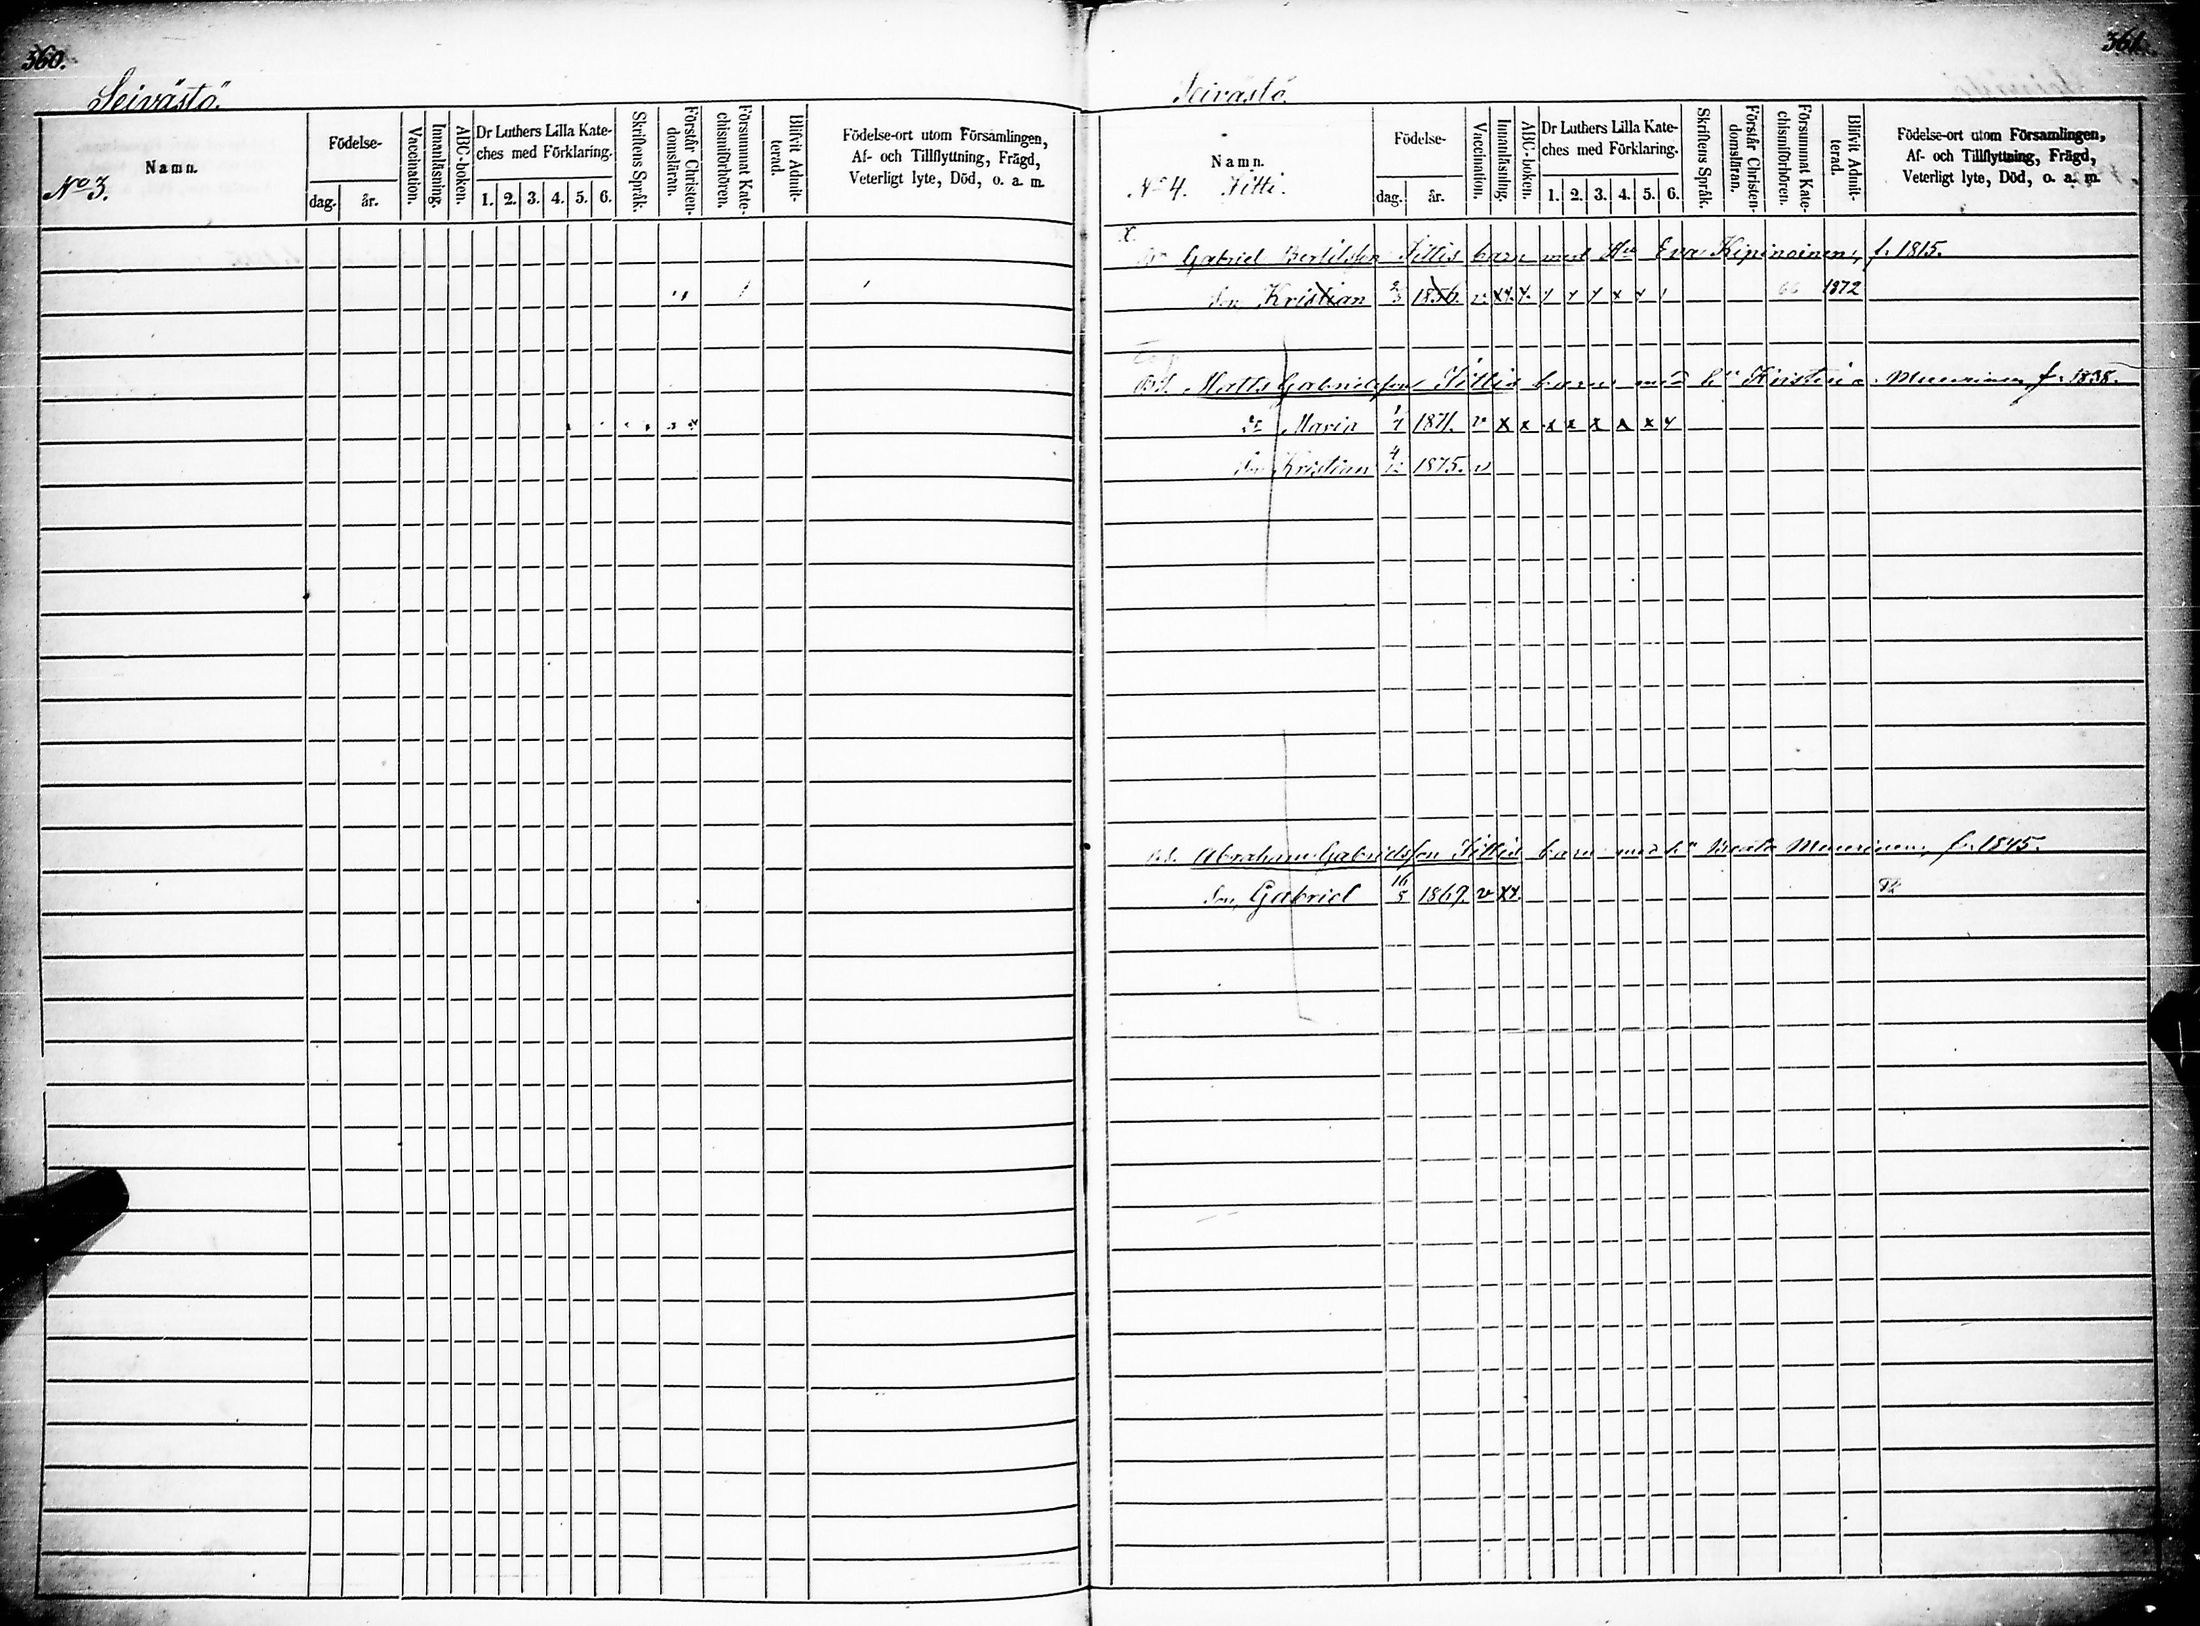 360.
Seivästö.
Namn.
No 3.
Födelse-
dag.
år.
Vaccination.
Innanläsning.
ABC-boken.
Dr Luthers Lilla Kate-
ches med Förklaring.
1. 2. 3. 4. 5. 6.
Skriftens Språk.
Förstår Christen-
domsläran.
Försummat Kate-
chismiförhören.
Blifvit Admit-
terad.
Födelse-ort utom Församlingen,
Af- och Tillflyttning, Frägd,
Veterligt lyte, Död, o. a. m.
361.
Seivästö.
Namn.
No 4. Titti.
Födelse-
dag.
år.
Vaccination.
Innanläsning.
ABC-boken.
Dr Luthers Lilla Kate-
ches med Förklaring.
1. 2. 3. 4. 5. 6.
Skriftens Språk.
Förstår Christen-
domsläran.
Försummat Kate-
chismiförhören.
Blifvit Admit-
terad.
Födelse-ort utom Församlingen,
Af- och Tillflyttning, Frägd,
Veterligt lyte, Död, o. a. m.
Gabriel Bertilsson Tittis barn med Hu Eva Kipinoinen, f. 1815.
Son Kristian 1856. v 1872
Matts Gabrielsson Tittis barn med hu Kristina Muurinen f. 1838.
Maria 1871. v x x x x x x x
Son Kristian 4/12 1875. v
Abraham Gabrielsson Tittis barn med hu Beata Muurinen, f. 1845.
Son Gabriel 16/5 1869. v